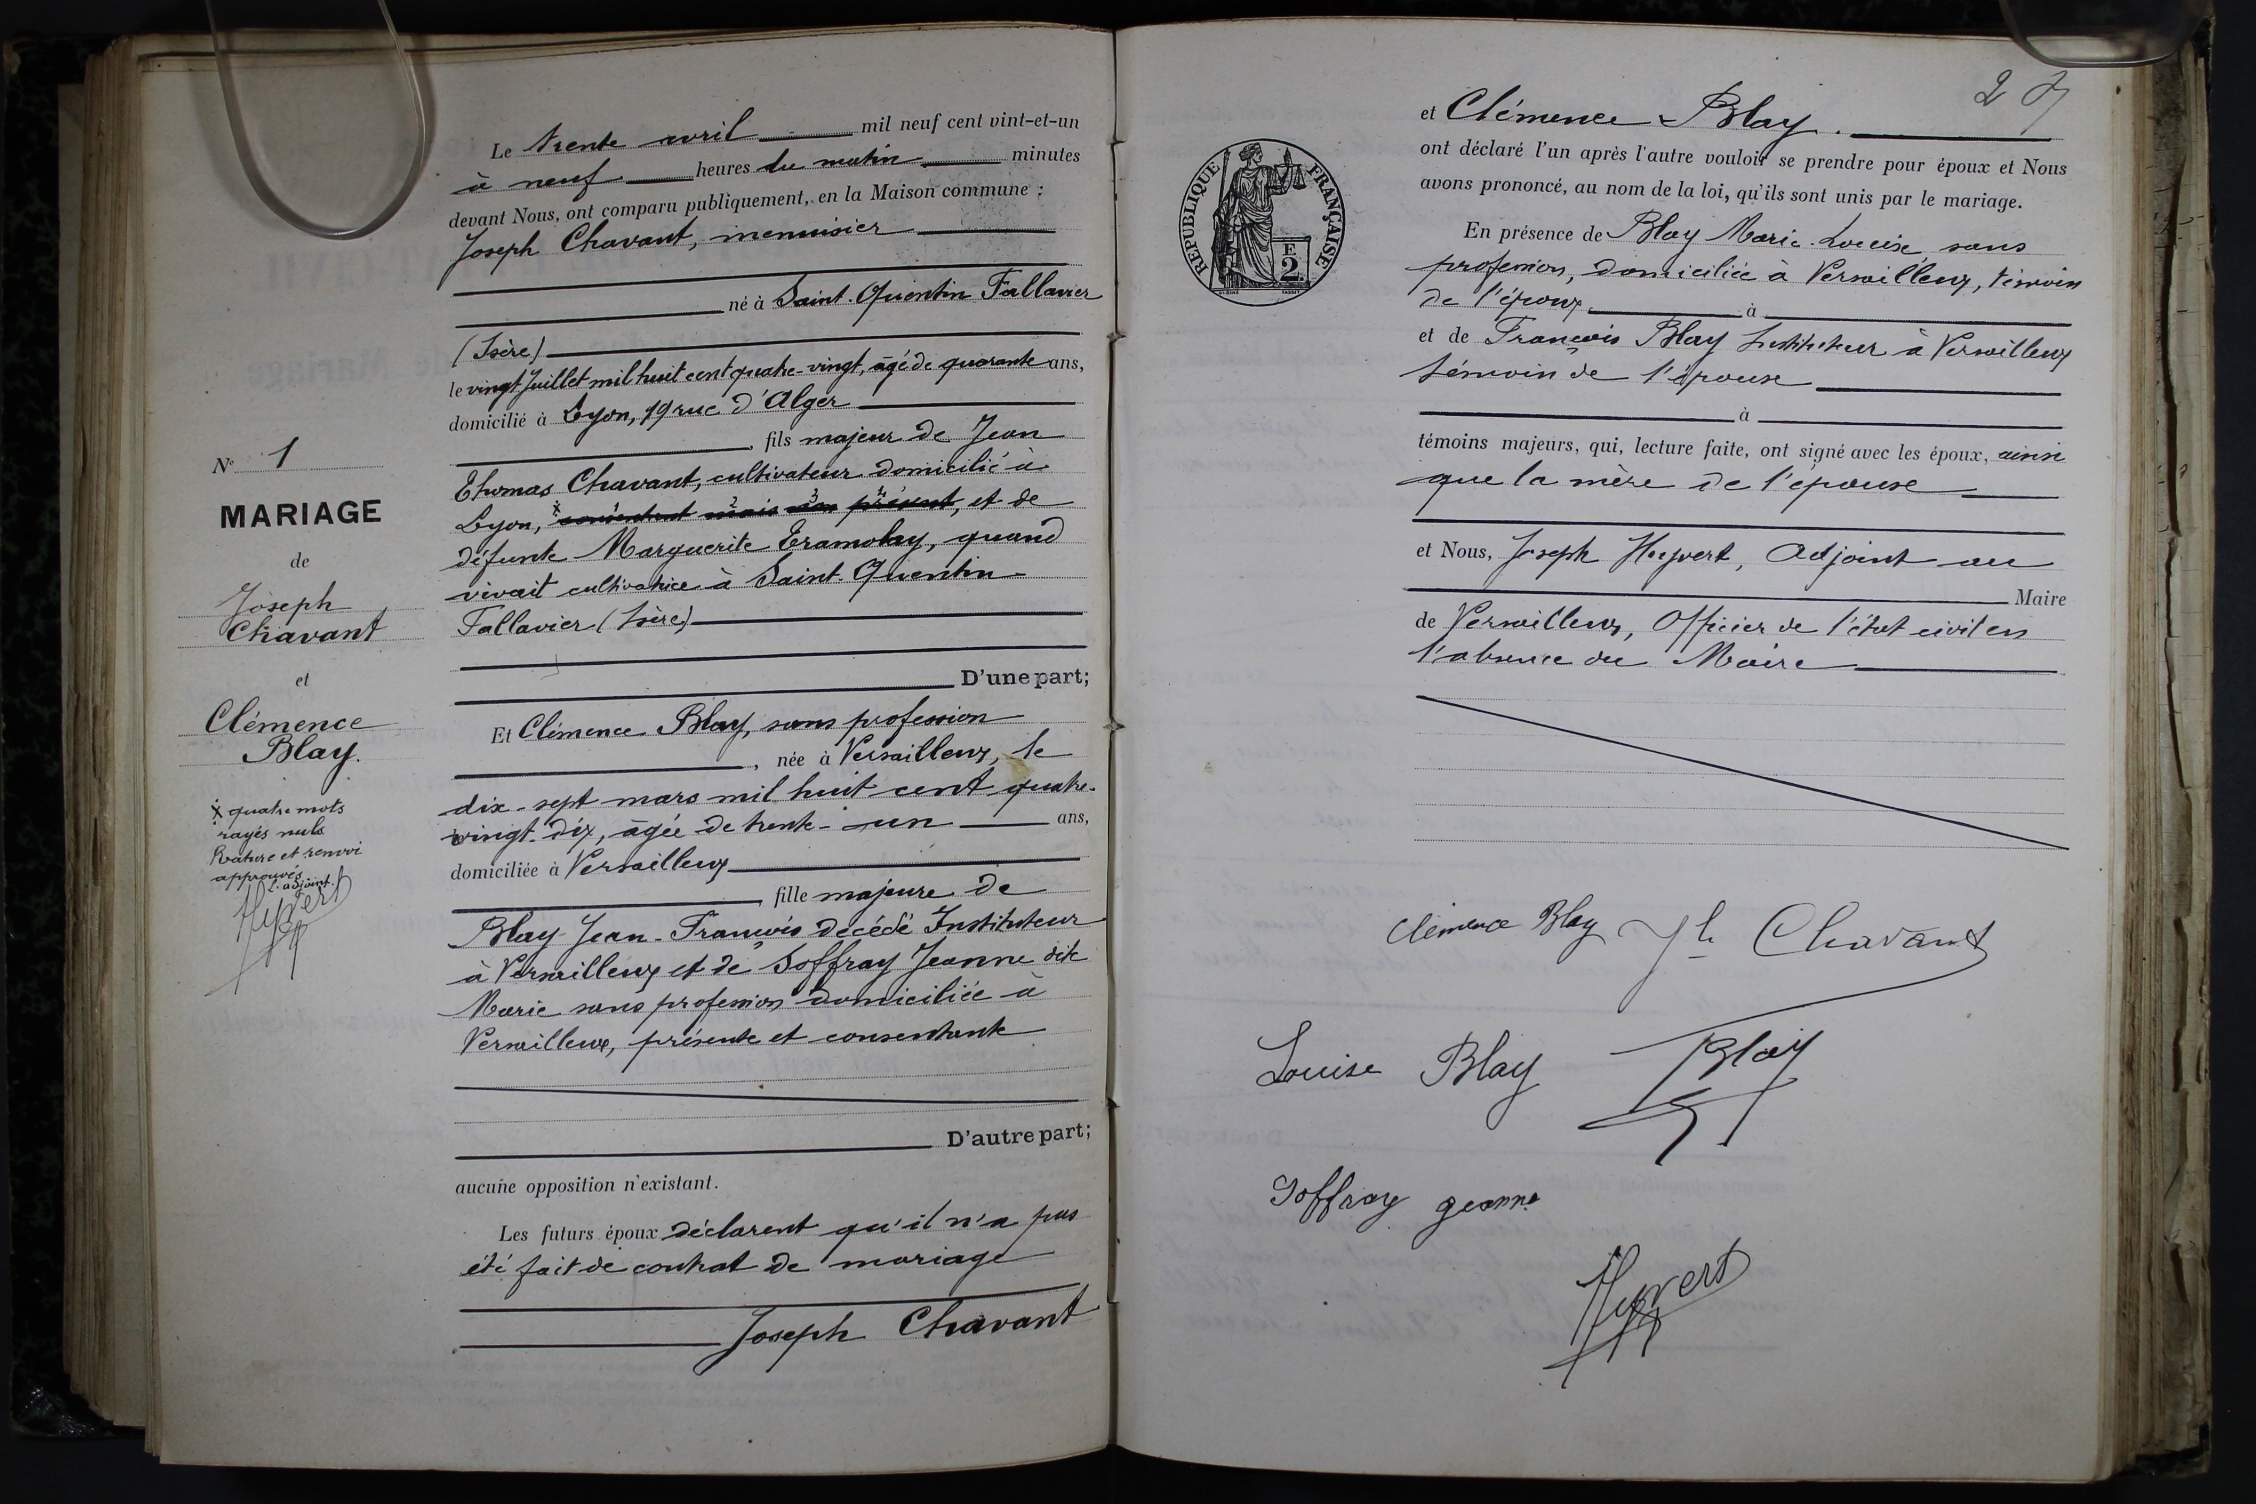 Le trente avril mil neuf cent vint-et-un
à neuf heures du matin minutes
devant Nous, ont comparu publiquement, en la Maison commune :
Joseph Chavant, menuisier
né à Saint-Quentin Fallavier
(Isère)
le vingt Juillet mil huit cent quatre-vingt, âgé de quarante ans,
domicilié à Lyon, 19 rue d'Alger
, fils majeur de Jean
Thomas Chavant, cultivateur domicilié à
Lyon, consentant mais non présent, et de
défunte Marguerite Tramolay, quand
vivait cultivatrice à Saint-Quentin
Fallavier (Isère)
D'une part;
Et Clémence Blay, sans profession
, née à Versailleux, le
dix-sept mars mil huit cent quatre-
vingt-dix, âgée de trente-un ans,
domiciliée à Versailleux
, fille majeure de
Blay Jean-François décédé Instituteur
à Versailleux et de Soffray Jeanne dite
Marie sans profession domiciliée à
Versailleux, présente et consentante
D'autre part;
aucune opposition n'existant.
Les futurs époux déclarent qu'il n'a pas
été fait de contrat de mariage
Joseph Chavant
N° 1
MARIAGE
de
Joseph
Chavant
et
Clémence
Blay.
x quatre mots
rayés nuls
Rature et renvoi
approuvés
L'adjoint
Hyvert
27
et Clémence Blay.
ont déclaré l'un après l'autre vouloir se prendre pour époux et Nous
avons prononcé, au nom de la loi, qu'ils sont unis par le mariage.
En présence de Blay Marie-Louise sans
profession, domiciliée à Versailleux, témoin
de l'époux à
et de François Blay Instituteur à Versailleux
témoin de l'épouse
à
témoins majeurs, qui, lecture faite, ont signé avec les époux, ainsi
que la mère de l'épouse
et Nous, Joseph Hyvert, Adjoint au
Maire
de Versailleux, Officier de l'état civil en
l'absence du Maire
RÉPUBLIQUE FRANÇAISE
E
2
Clémence Blay Jh Chavant
Louise Blay Blay
Soffray Jeanne
Hyvert